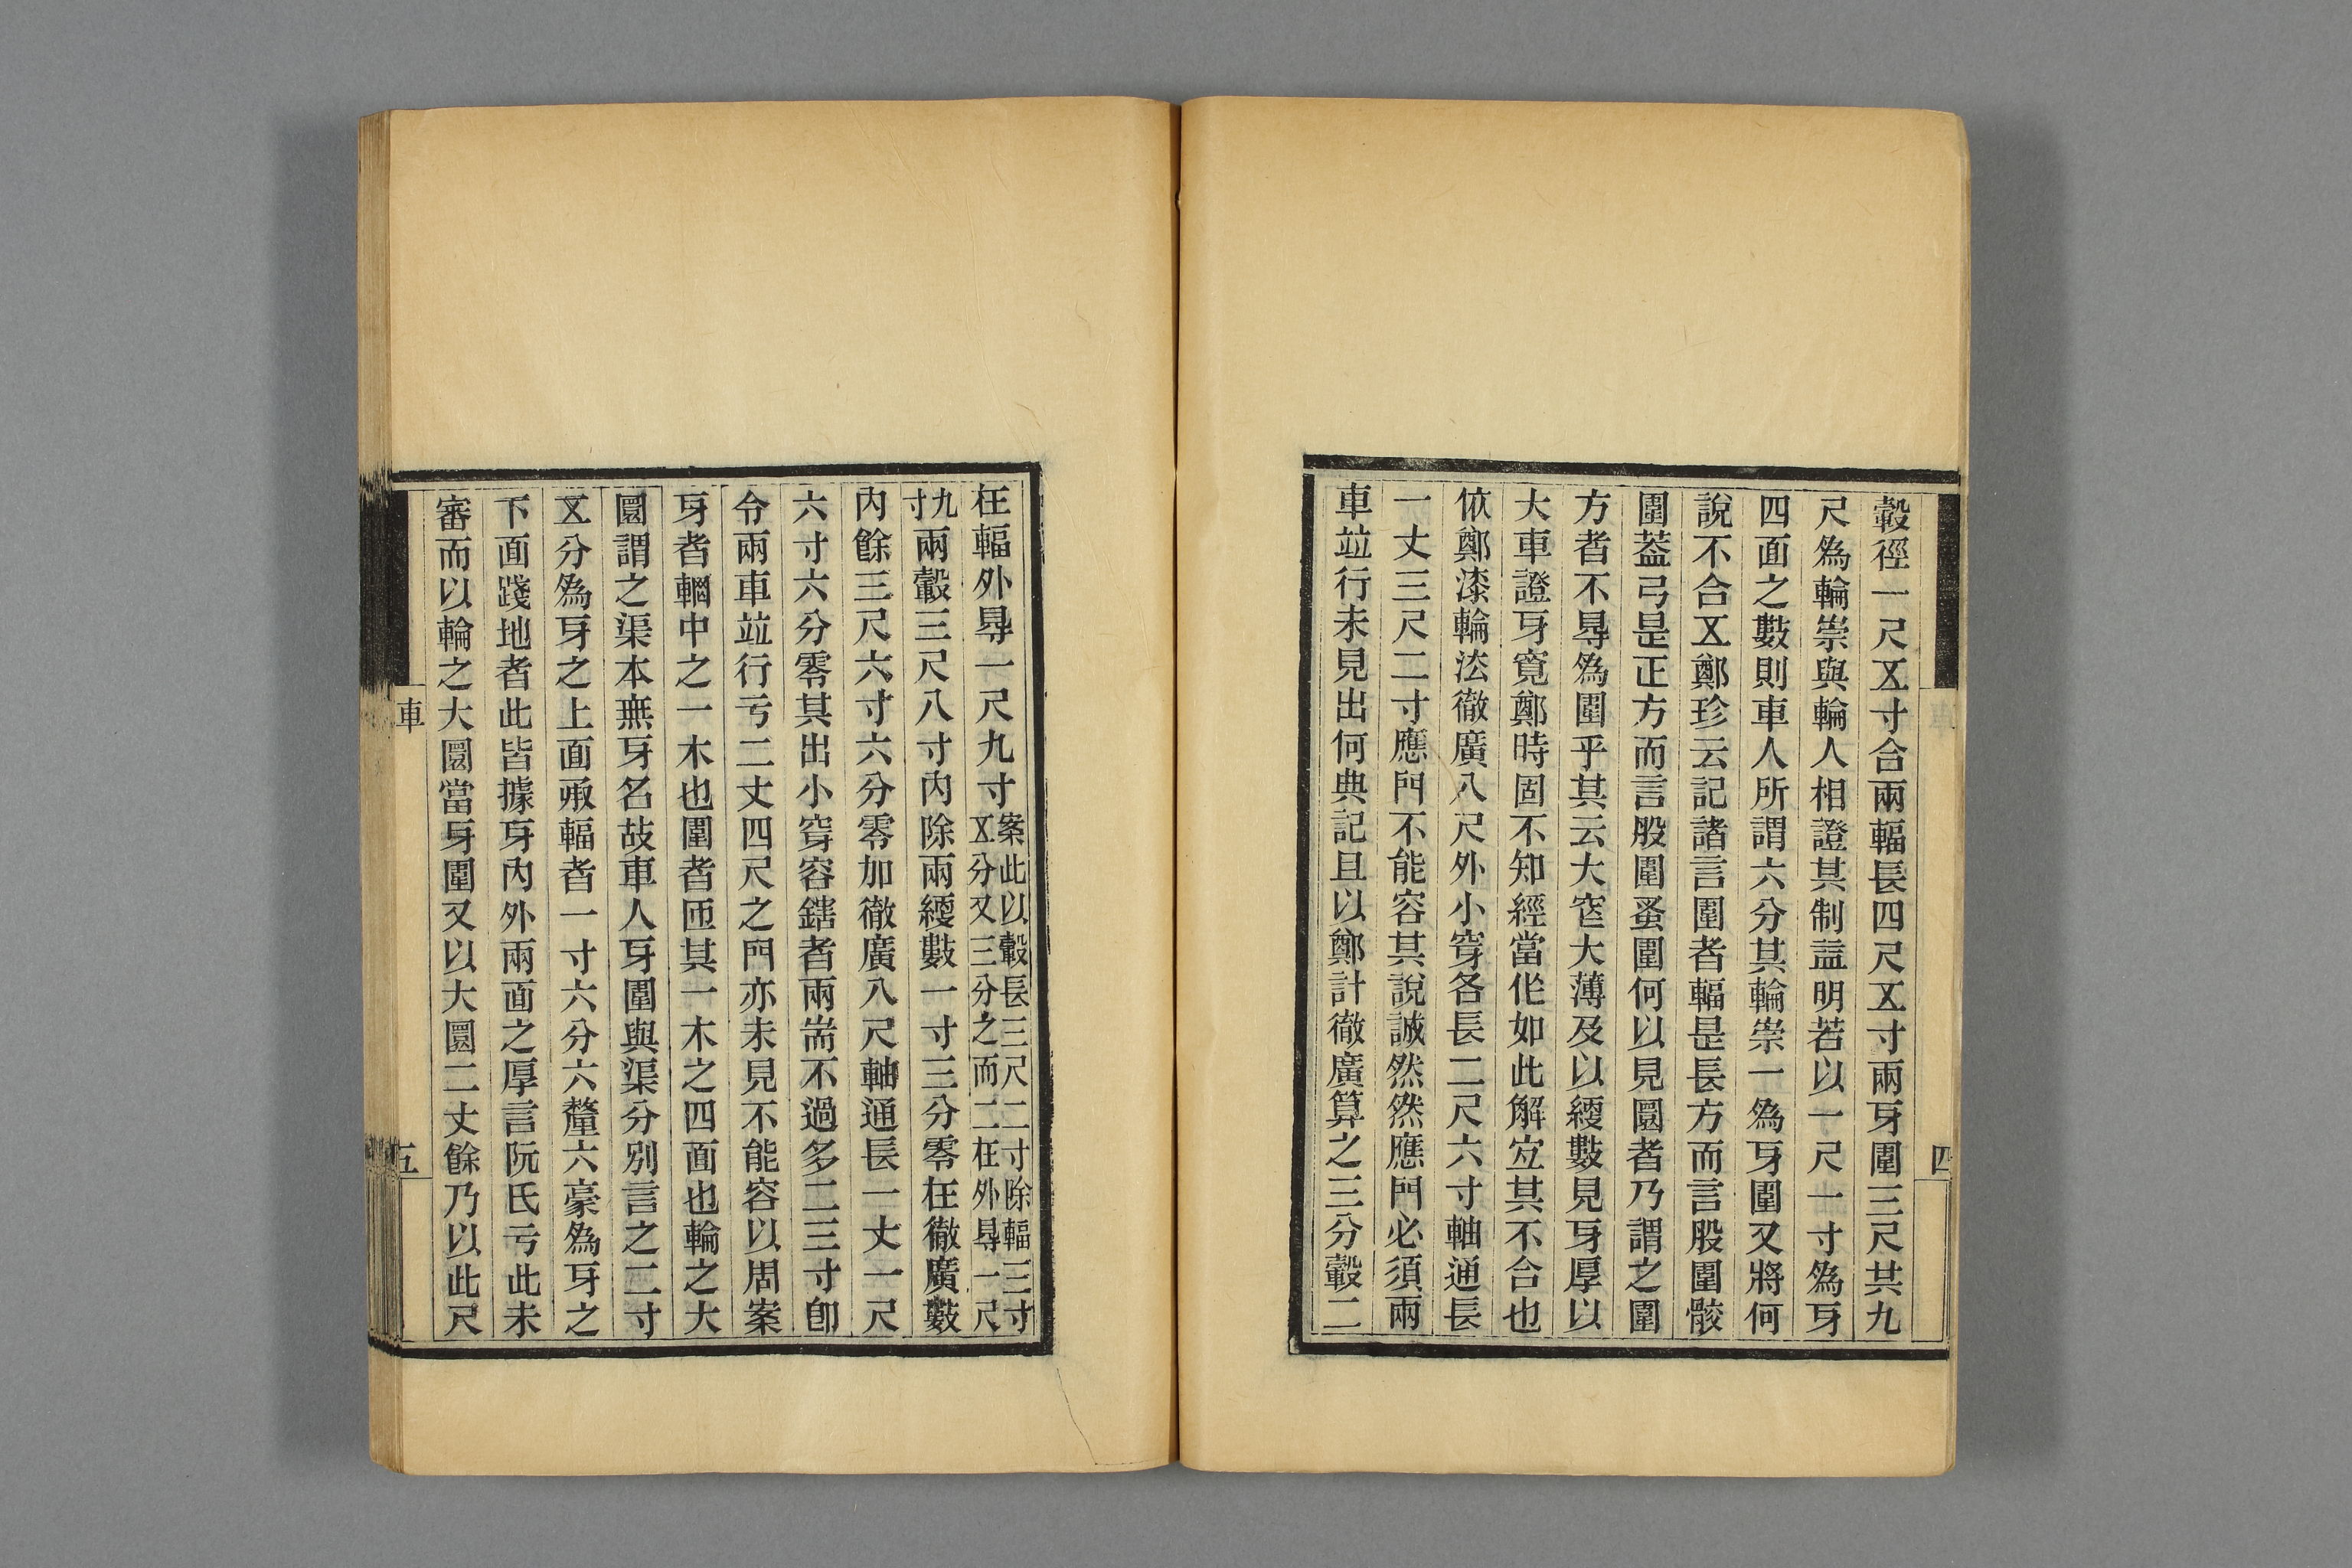 轂徑一尺㐅寸合兩輻長四尺㐅寸兩牙圍三尺其九
尺為輪崇與輪人相證其制益明若以一尺一寸為牙
四面之數則車人所謂六分其輪崇一為牙圍又將何
說不合㐅鄭珍云記諸言圍者輻是長方而言股圍骹
圍蓋弓是正方而言股圍蚤圍何以見圜者乃謂之圍
方者不㝵為圍乎其云大窄大薄及以綆數見牙厚以
大車證牙寬鄭時固不知經當作如此解宐其不合也
依鄭漆輪法徹廣八尺外小穿各長二尺六寸軸通長
一丈三尺二寸應門不能容其說誠然然應門必須兩
車竝行未見出何典記且以鄭計徹廣算之三分轂二
四
在輻外㝵一尺九寸案此以轂長三尺二寸除輻三寸
㐅分又三分之而二在外㝵一尺
九寸兩轂三尺八寸內除兩綆數一寸三分零在徹廣數
內餘三尺六寸六分零加徹廣八尺軸通長一丈一尺
六寸六分零其出小穿容鎋者兩耑不過多二三寸卽
令兩車竝行亏二丈四尺之門亦未見不能容以周案
牙者輞中之一木也圍者匝其一木之四面也輪之大
圜謂之渠本無牙名故車人牙圍與渠分別言之二寸
㐅分為牙之上面承輻者一寸六分六釐六豪為牙之
下面踐地者此皆據牙內外兩面之厚言阮氏亏此未
審而以輪之大圜當牙圍又以大圜二丈餘乃以此尺
車
五